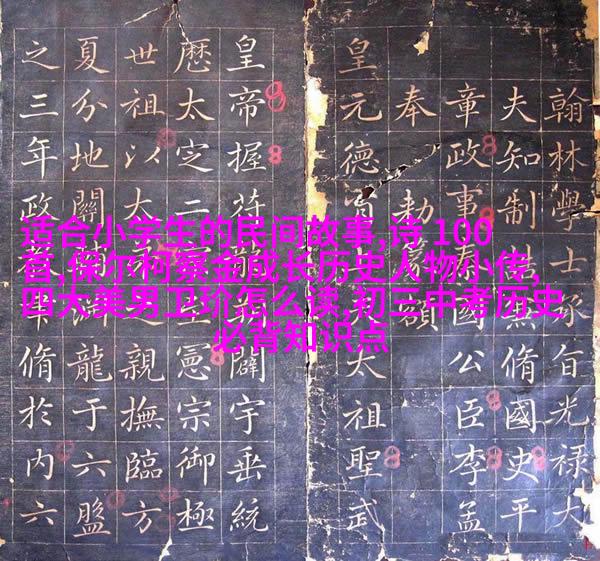 适合小学生的民间故事,诗 100
首,保尔柯察金成长历史人物小传,
四大美男卫玠怎么读,初三中考历史
必背知识点
翰林學士承旨光祿大
夫知制脩國史平
章政事國公臣李孟
奉勅額
皇元德太祖聖武
皇帝握符闢宇垂統
歷太定二憲宗御極
世祖以大親撫臨方
夏分地關龍于六盤
之三年政脩於内六